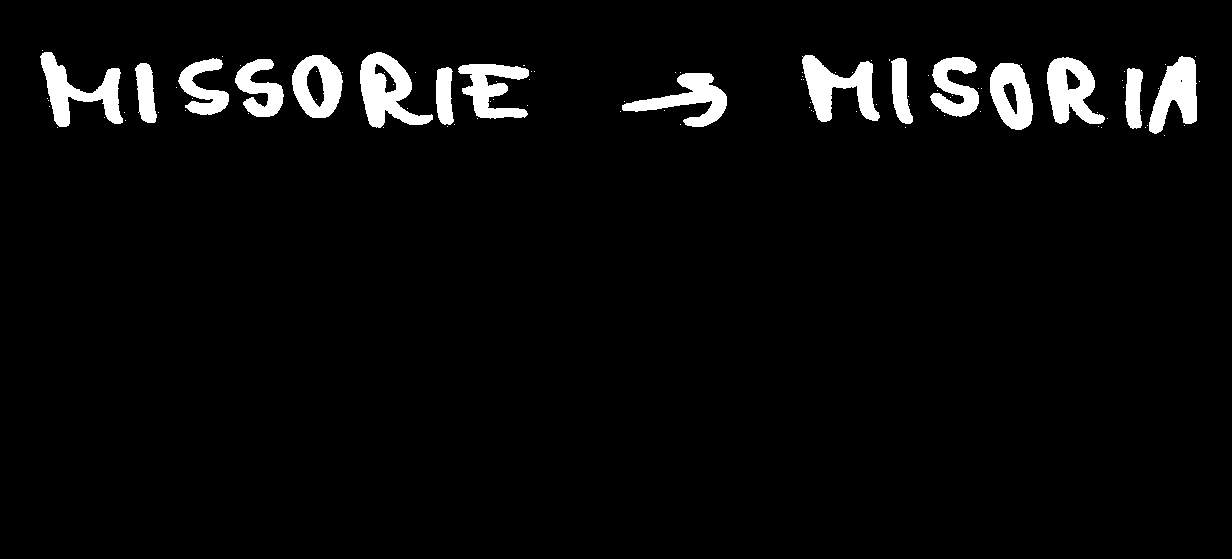 MISSORIE → MISORIA